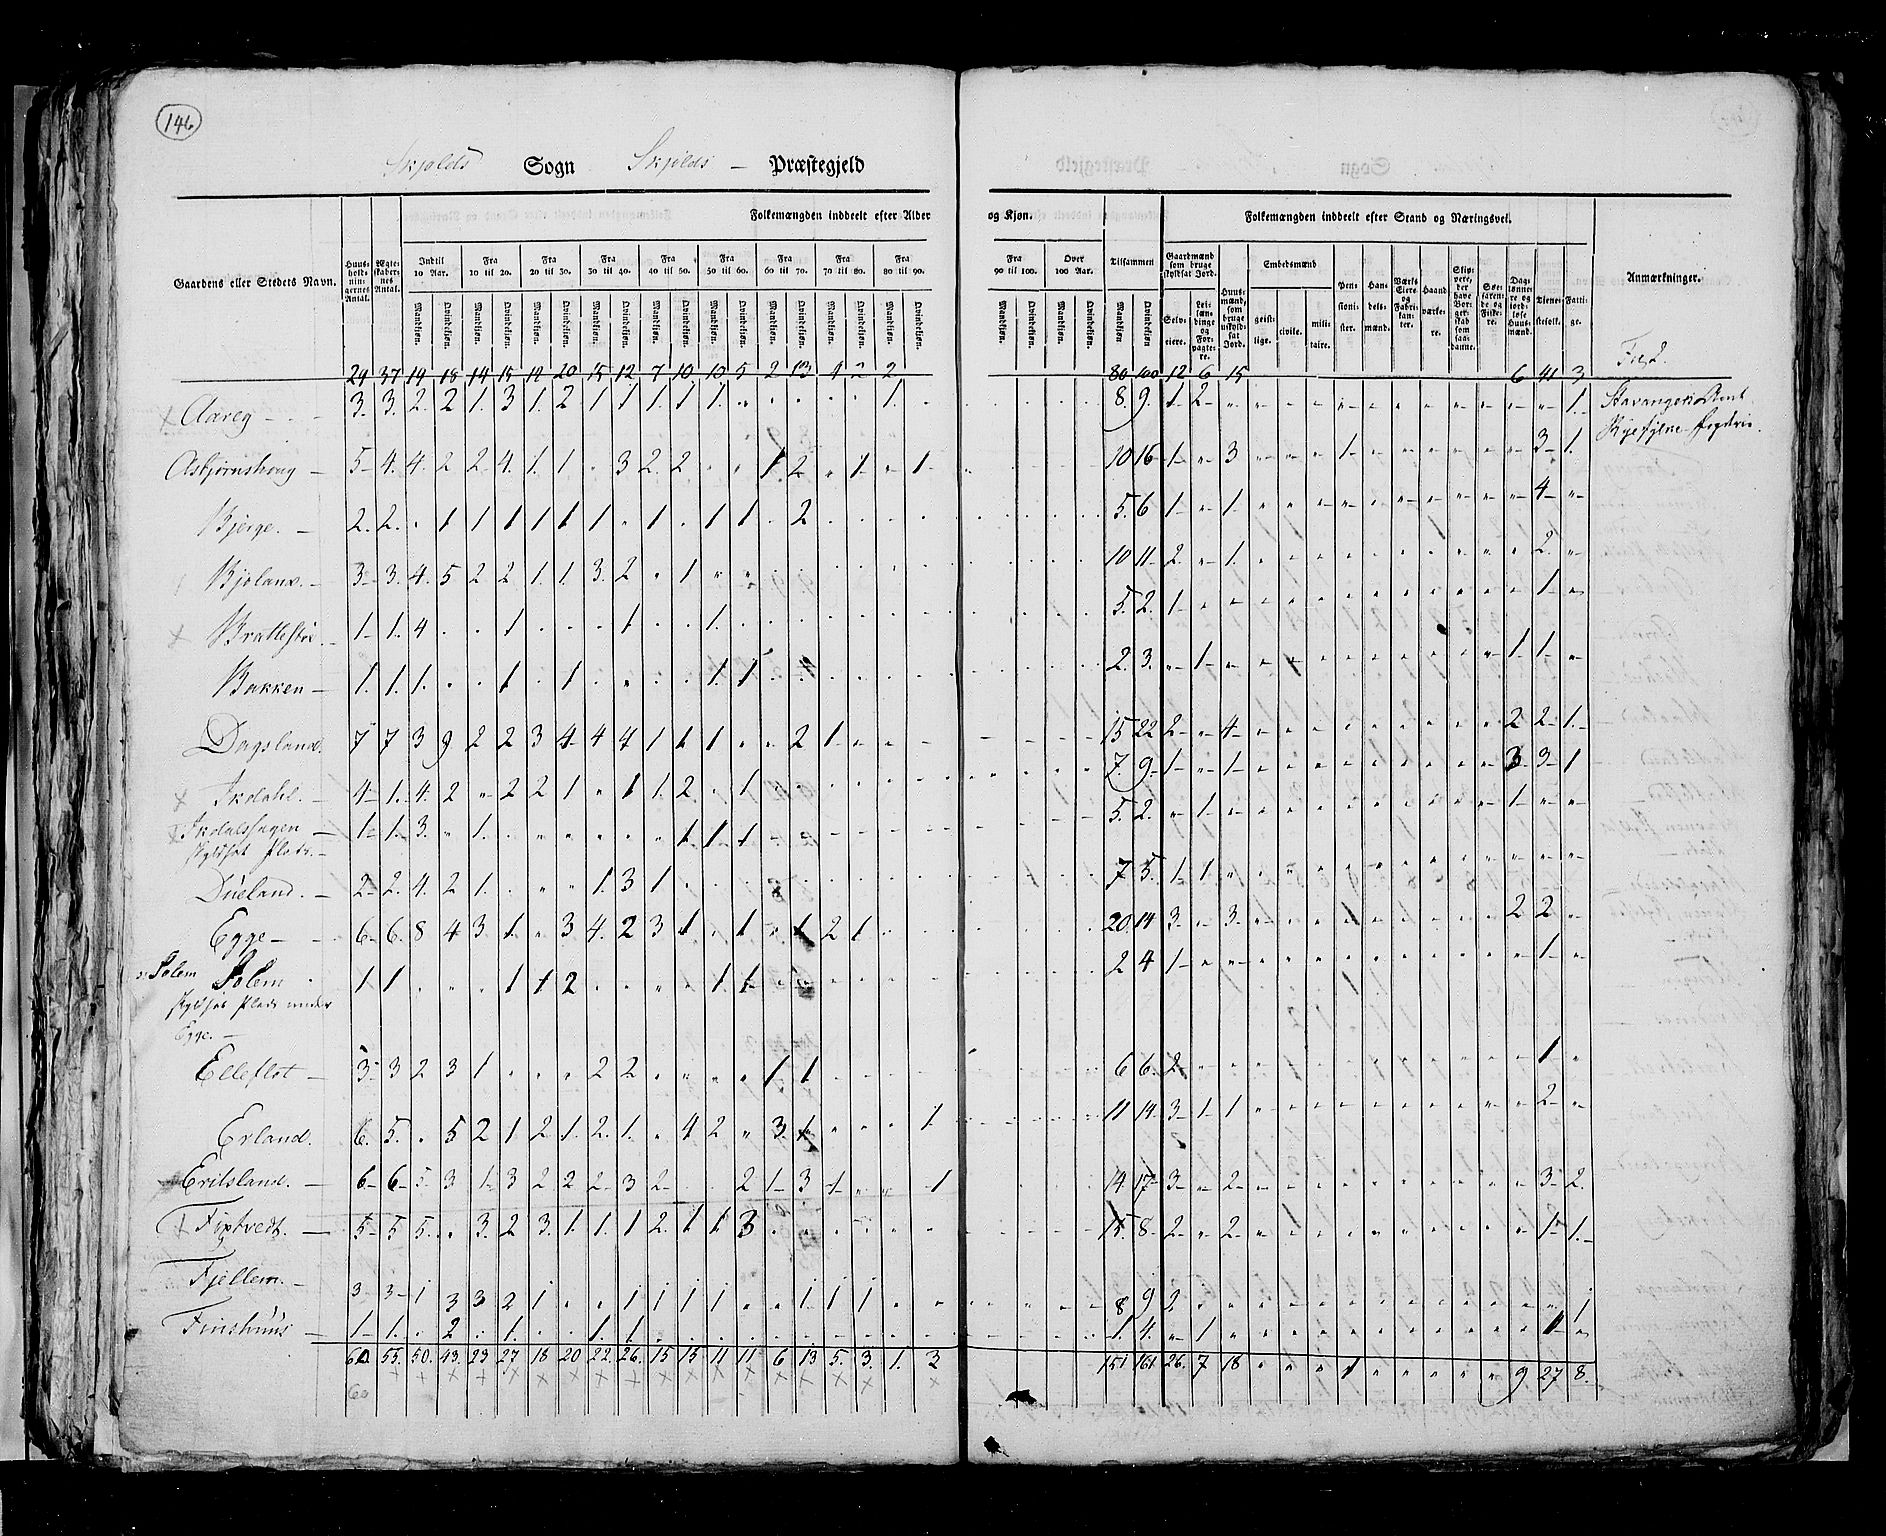 146
Skjolds Sogn Skjolds — Præstegjeld
Folkemængden inddeelt efter Alder og Kjøn. Folkemængden inddeelt efter Stand og Næringsvei.
Gaardens eller Stedets Navn. Huus-holdnin-gernes Antal. Ægte-skaber-nes Antal. Indtil 10 Aar. Fra 10 til 20. Fra 20 til 30. Fra 30 til 40. Fra 40 til 50. Fra 50 til 60. Fra 60 til 70. Fra 70 til 80. Fra 80 til 90. Fra 90 til 100. Over 100 Aar. Tilsammen Gaardmænd som bruge skyldsat Jord. Embedsmænd Anmærkninger.
Mandkjøn. Qvindekjøn. Selv-eiere. Lei-læn-dinge og For-pagte-re. Huus-mænd, som bruge uskyld-sat Jord. geist-lige. civile. mili-taire. Pen-sioni-ster. Han-dels-mænd. Værks Eiere og Fabri-kan-ter. Haand værke-re. Skip-pere, der have Bor-ger-skab som saa-danne. Søe-faren-de og Fiske-re. Dag-lønne-re og jord-løse Huus-mænd. Tiene-stefolk. Fatti-ge.
29 37 19 18 14 15 12 20 15 12 7 10 10 5 2 13 4 2 2 80 100 12 6 15 6 41 3
Aareg 3. 3. 2. 2 1. 3 1. 2 1 1 1. 1 1. 1. 8. 9. 1 2 1.
Asbjørnshoug 5 4. 4. 2 2 4. 1. 1 3 2. 2 1 2 1. 1 10 16 1 3 1 3 1.
Bjerge. 2. 2. 1 1 1 1 1 1 1. 1 1 2 5. 6 1 1 4
Bjoland. 3. 3. 4. 5 2 2 1. 1. 3. 2 1 10 11. 2. 1. 2.
Brattestøe 1. 1. 4 1 1 1. 5. 2. 1 1
Bakken 1. 1. 1. 1 1. 1. 1 2. 3. 1 1. 1
Dagsland. 7 7 3 9 2 2 3 4 4 4 1 1 1 2 1 15 22 2 4 2 2 1.
Ikdahl. 4 1. 4. 2 2 2 1 1 1. 2 1 7. 9. 1 1 3 3 1
Ikdalshagen 1 1. 3. 1. 1. 1. 1 5. 2. 1 1
skyldsat Plads.
Dueland. 2 2. 4. 2 1. 1. 3 1 7 5. 1 1
Egge 6 6. 8 4 3. 1. 3 4. 2 3 1 1 1 2 1 20. 14 3. 3. 1 2 2
Solem Solem 1 1 1 1 2 1. 1 2 4 1 1
skyldsat Plads under
Egge.
Elleflot 3. 3 2 3 1 2 2 1 1 6 6. 2 1
Erland. 6. 5. 5 2 1 2 1. 2. 1. 4 2 3. 1 1 11 14. 3 1 1 2
Erilsland. 6 6 5. 3 1. 3 2 2 2. 3 2 2 1 3 1 1 14. 17 3 2 3 2.
Fiptvedt. 5 5 5. 3. 2 3. 1. 1. 1 2. 1 1 3 15. 8. 2 2 1 1.
Fjellem. 3 3 1 3 3 2 1 1 1 1 1 1 1 1 8 9 2 1
Finshuus 1 1. 2 1. 1. 1. 1. 4. 1 1
60 55. 50. 43. 29 27 18 20 22. 26. 15 15 11 11. 6 13 5. 3. 1. 3 151 161 26. 7 18 1 9 27 8.
60